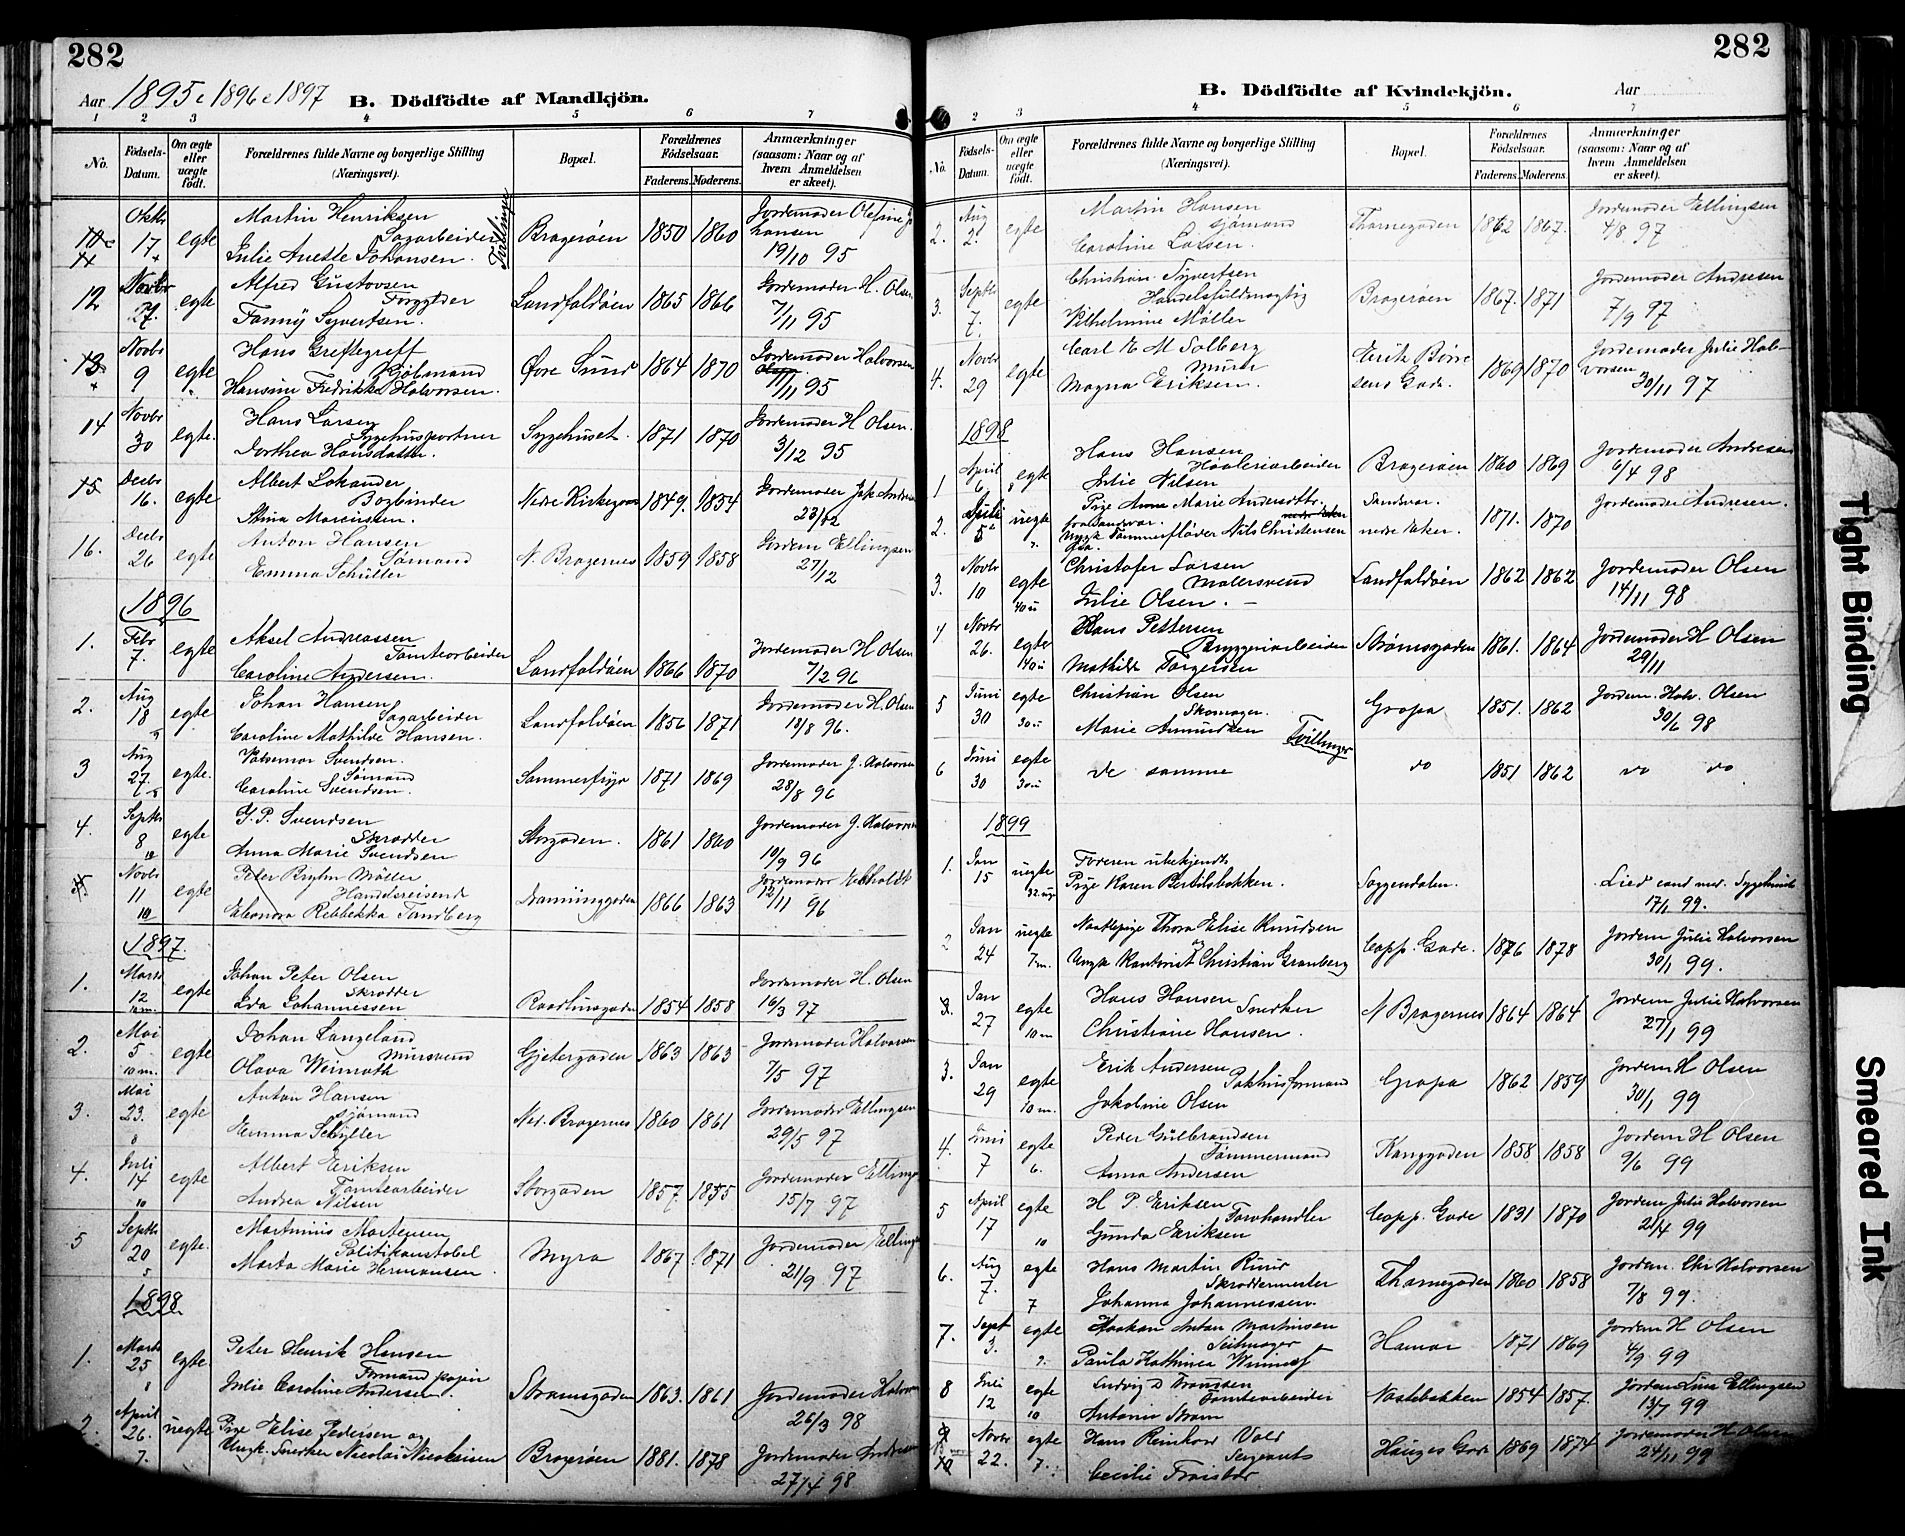 282
Aar 1895 & 1896 & 1897 B. Dödfödte af Mandkjön.
1 2 3 4 5 6 7
No. Födsels-Datum. Om ægte eller uægte födt. Forældrenes fulde Navne og borgerlige Stilling (Næringsvei). Bopæl. Forældrenes Födselsaar. Faderens. Moderens. Anmærkninger (saasom: Naar og af hvem Anmeldelsen er skeet).
Oktbr 17 egte Martin Henriksen Sagarbeider Bragerøen 1850 1860 Jordemoder Olefine Johansen
Julie Anette Johansen. Tvillinge 19/10 95
12 Novbr 27. egte Alfred Gustavsen Forgylder Landfaldøen 1865 1866 Jordemoder H. Olsen
Fanny Syvertsen. 7/11 95
13 Novbr 9 egte Hans Greftegreff Kjøbmand Øvre Sund 1864 1870 Jordemoder Halvorsen
Hansine Fredrikke Halvorsen. 11/11 95
14 Novbr 30 egte. Hans Larsen Sygehusportner Sygehuset. 1871 1870 Jordemoder H Olsen.
Dorthea Hansdatter. 3/12 95
15 Decbr 16. egte Albert Lohander Bogbinder Nedre Kirkegade 1849. 1854 Jordemoder
Stina Marcussen. 23/12
16. Decbr 26 egte Anton Hansen Sømand N. Bragernes 1859 1858 Jordem Ellingsen
Emma Schüller 27/12
1896
1. Febr 7. egte Aksel Andreassen Tomtearbeider Landfaldøen 1866 1870 Jordemoder H Olsen
Caroline Andersen. 7/2 96
2. Aug 18 egte Johan Hansen Sagarbeider Landfaldøen 1856 1871 Jordemoder H. Olsen
Caroline Mathilde Hansen. 18/8 96.
3 Aug 27 egte. Valdemar Svendsen. Sømand Sommerfryd 1871 1869 Jordemoder J. Halvorsen
Caroline Svendsen. 28/8 96
4. Septbr 8 egte G. P. Svendsen Skrædder Storgaden. 1861 1860 Jordemoder J. Halvorsen
Anna Marie Svendsen 10/9 96
5 Novbr 11 egte Peter Bryhn Möller Handelsreisend 1866 1863 Jordemoder
Eleonora Rebbekka Tandberg 12/11 96
1897.
1. Marts 12 egte Johan Peter Olsen Skrædder Raadhusgaden 1854 1858 Jordemoder H. Olsen
Lda Johannessen 16/3 97
2. Mai 5 egte Johan Langeland Mursvend Gjetergaden 1863 1863 Jordemoder Halvorsen
Olava Weimoth 7/5 97
3. Mai 23. egte Anton Hansen Sjömand Ned. Bragernes 1860 1861 Jordemoder Ellingsen
Emma Schyller 29/5 97
4. Juli 14 egte Albert Eriksen Tomtearbeider Storgaden 1857. 1855 Jordemoder
Andrea Nilsen 15/7 97
5 Septbr 20 egte. Martinius Mortensen Politikonstabel Myra 1867 1871 Jordemoder
Marta Marie Hermansen. 21/9 97
1898.
1. Marts 25 egte. Peter Henrik Hansen Formand Strømsgaden 1863. 1861 Jordemoder Halvorsen
Julie Caroline Andersen. 26/3 98
2. April 26. uegte Pige Elise Pedersen og
7. Ungk. Snedker Nicolai Nicolaisen Bragerøen 1881. 1878 Jordemoder Andresen
27/4 98
282
B. Dödfödte af Kvindekjön. Aar
2 3 4 5 6 7
No. Födsels-Datum. Om ægte eller uægte födt. Forældrenes fulde Navne og borgerlige Stilling (Næringsvei). Bopæl. Forældrenes Födselsaar. Faderens. Moderens. Anmærkninger (saasom: Naar og af hvem Anmeldelsen er skeet).
2. Aug 2. egte Martin Hansen Sjømand Tharnegaden 1862 1867. Jordemoder Ellingsen
Caroline Larsen. 4/8 97
3. Septbr 7. egte Christian Syvertsen Handelsfuldmægtig Bragerøen 1867. 1871 Jordemoder Andresen
Vilhelmine Møller 7/9 97
4. Novbr 29 egte Carl E M Solberg Murer Erik Børresens Gade. 1869 1870 Jordemoder Julie Halvorsen
Magna Eriksen. 30/11 97
1898
1 April 6 egte Hans Hansen Høvleriarbeider Bragerøen 1860 1869 Jordemoder Andresen
Julie Nilsen 6/4 98
2. Juli 5 uegte Pige Anna Marie Andersdtr. fra Sandvær. Sandvær. 1871. 1870 Jordemoder Andresen.
Ungk Tømmerfløder Nils Christensen nedre
3. Novbr 10 egte Christofer Larsen Malersvend Landfaldøen 1862 1862 Jordemoder Olsen
40 u Julie Olsen. 14/11 98
4 Novbr 26. egte Hans Pettersen Bryggeriarbeider Strømsgaden 1861. 1864 Jordemoder H Olsen
40 u Mathilde Torgersen 29/11
5 Juni 30 egte Christian Olsen Skomager. Gropa 1851. 1862 Jordem. Halv. Olsen
30 u Marie Amundsen Tvillinger 30/6 98
6 Juni 30 egte 30 u de samme do 1851 1862 do do
1899
1. Jan 15 uegte Faderen ubekjendt
32 uge Pige Karen Bertilsbakken. Soggendalen. Lied cand med. Sygehuset
17/1 99.
2 Jan 24 uegte Naatlepige Thora Elise Knudsen og Copp. Gade. 1876 1878 Jordem Julie Halvorsen
7 m. Ungk Kontorist Christian Granberg 30/1 99.
Jan 27 egte Hans Hansen Snedker N Bragernes 1864 1864 Jordem Julie Halvorsen
10 m Christiane Hansen. 27/1 99
3. Jan 29 egte Erik Andersen Pakhusformand Gropa 1862 1859 Jordem H Olsen
10 m. Jakobine Olsen 30/1 99
4. Juni 7 egte Peder Gulbrandsen Tømmermand Konggaden 1858. 1858 Jordem H Olsen
6. Anna Andersen 9/6 99
5 April 17 egte H P. Eriksen Farvhandler Copp. Gade 1831 1870 Jordem Julie Halvorsen
10 Gunda Eriksen 21/4 99
6. Aug 7. egte Hans Martin Ruud Skræddermester Tharnegaden 1860 1858 Jordem. Chr Halvorsen
7 Johanna Johannessen. 7/8 99.
7. Sept 3. egte Haakon Anton Martinsen Seilmager Hamar 1871 1869 Jordem H Olsen
Paula Kathinea 4/9 99
8 Juli 12 egte Ludvig D Franssen Tomtearbeider Nostebakken 1854 1857. Jordem Lina Ellingsen
10 Antonia Strøm 13/7 99
Novbr 22. egte Hans Reinhard Vold Sergeant Hauges Gade 1869 1874 Jordemoder H Olsen
7. Cecilie 24/11 99
Tight Binding
Smeared Ink